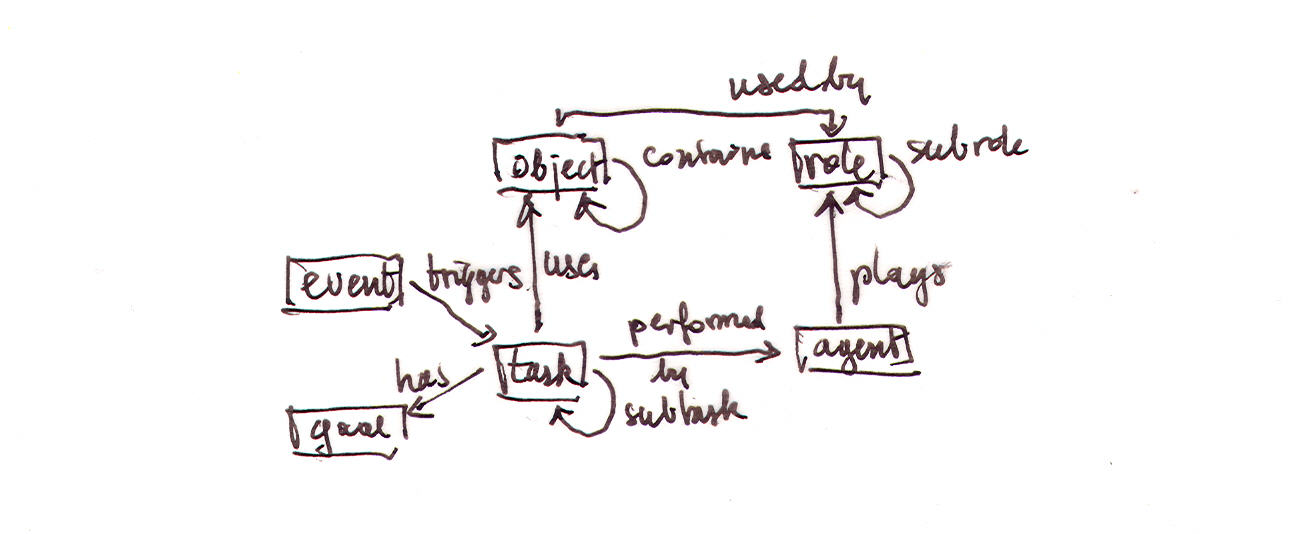 used by
object
contains
role
subrole
event
triggers
uses
plays
performed
by
task
agent
has
subtask
goal